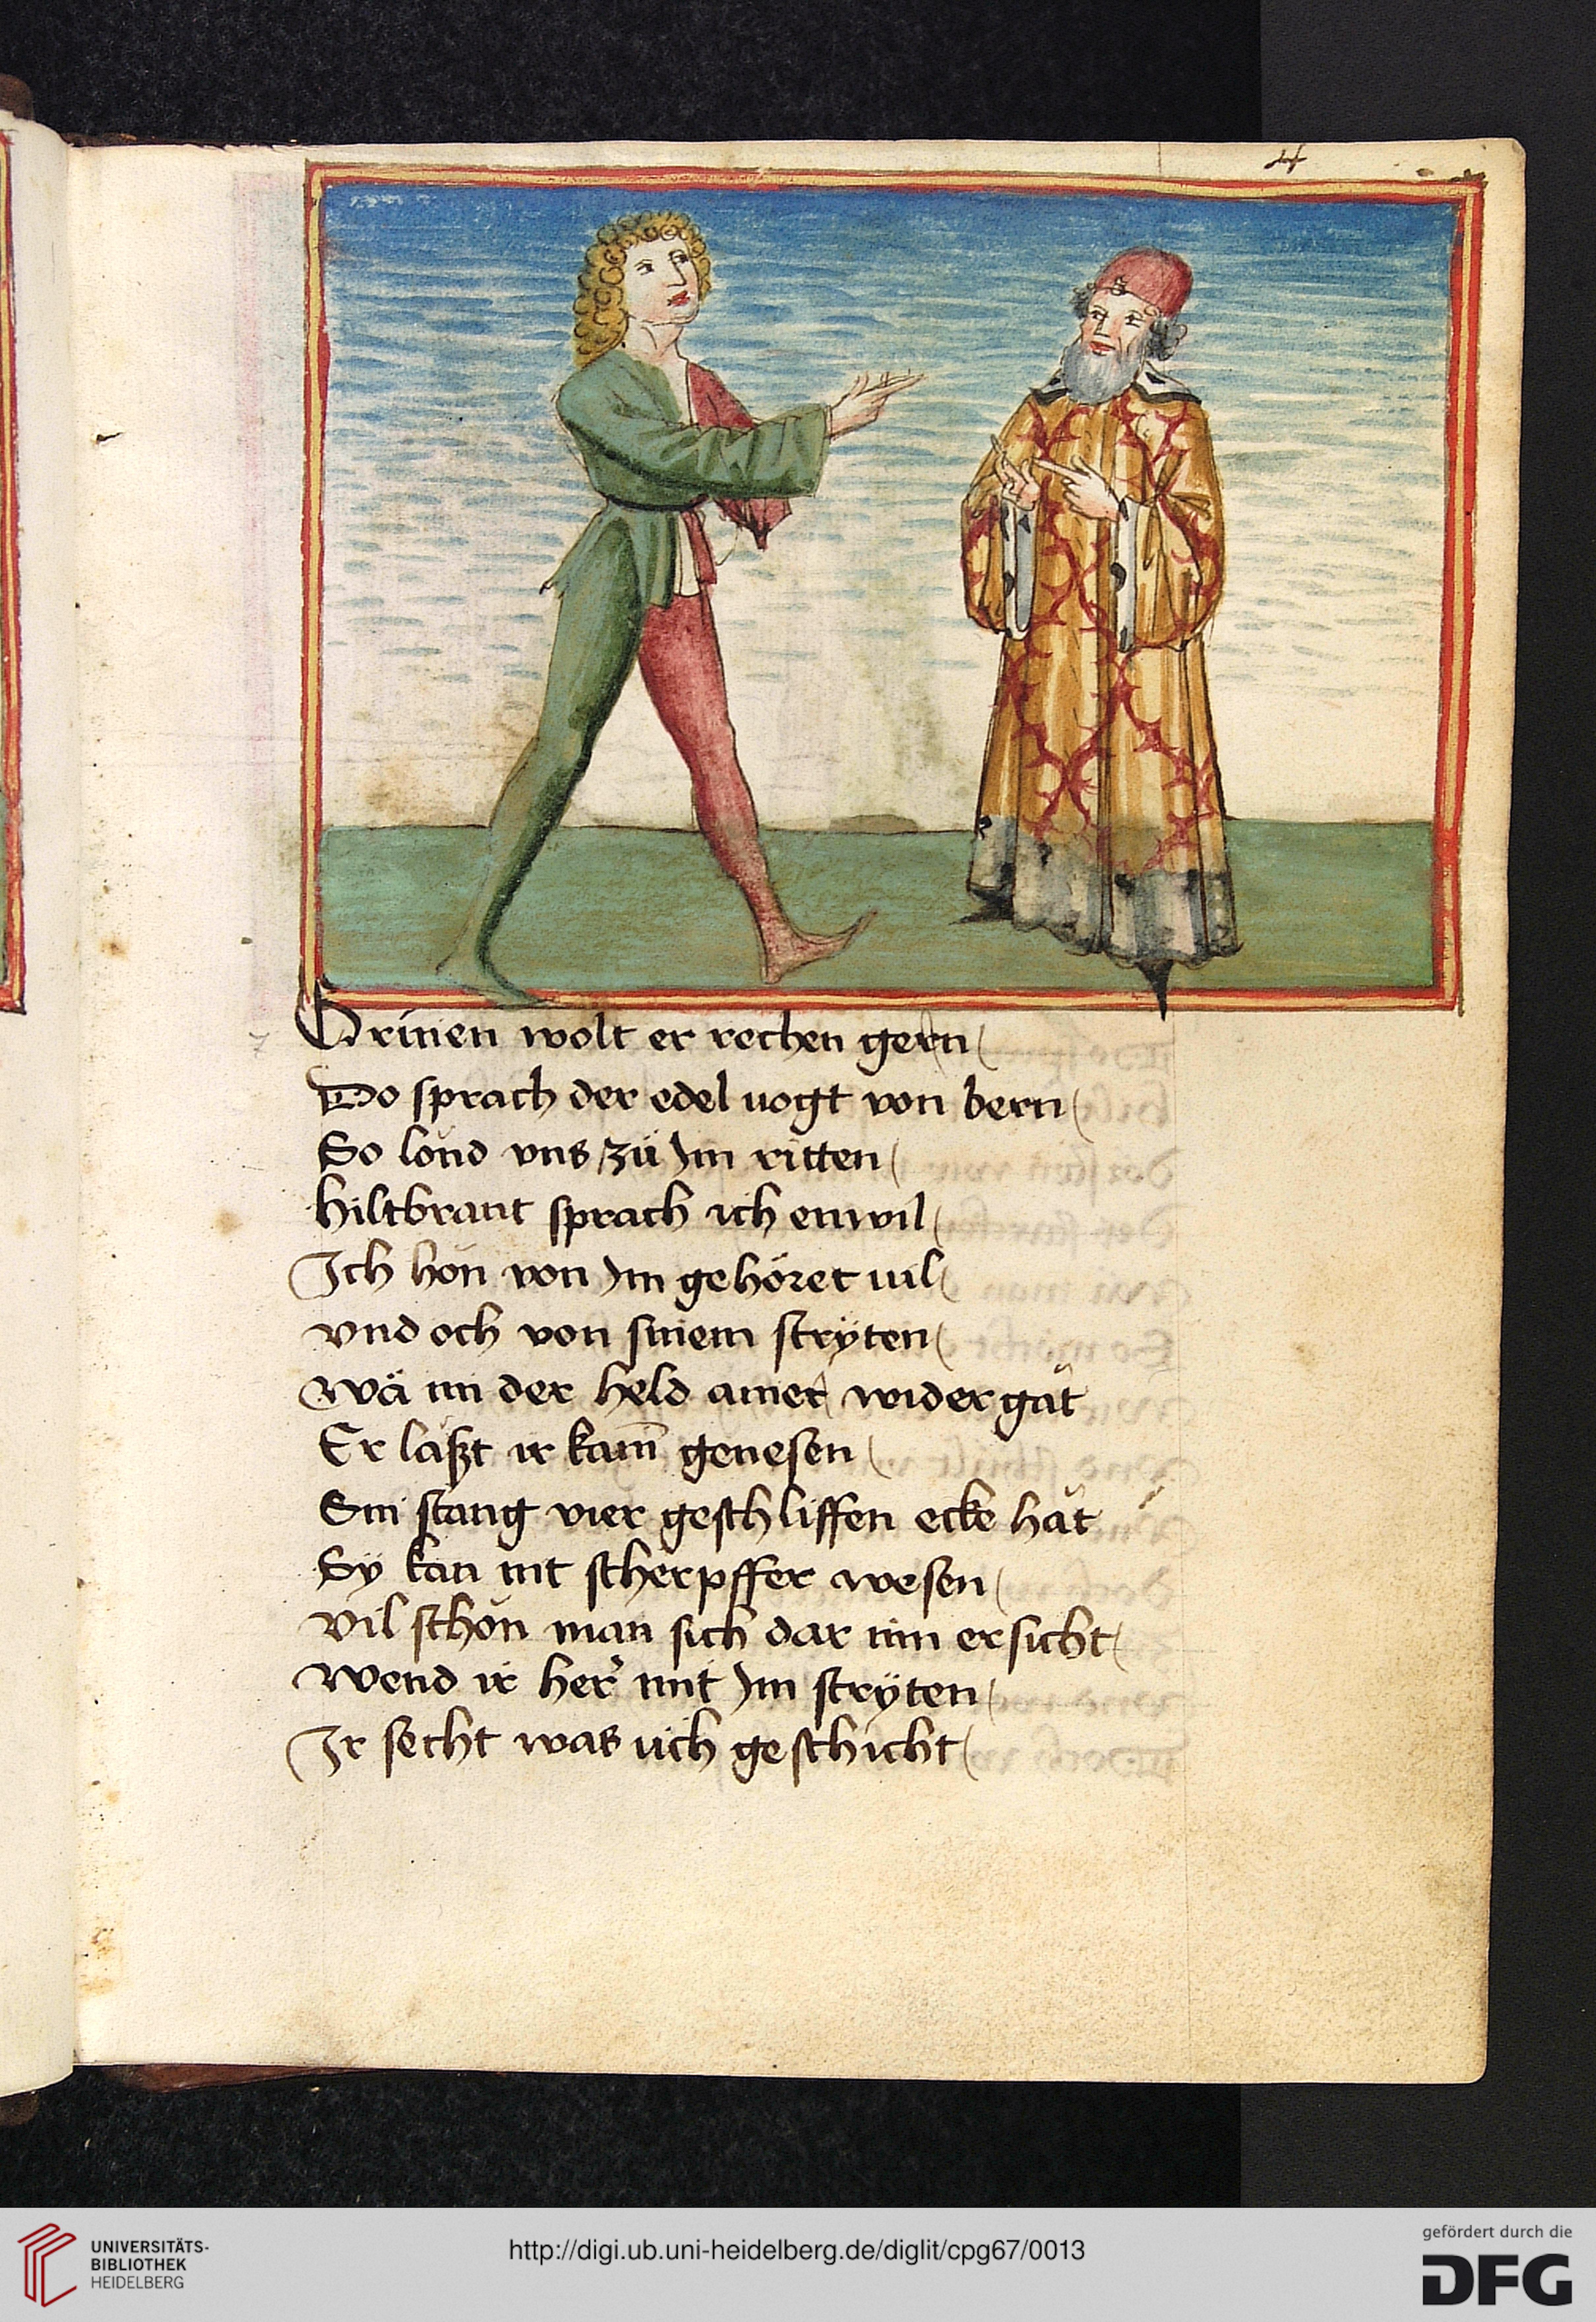 4
Grinen wolt er rechen gern
Do sprach der edel uogt von bern
So lond vns zu Im ritten
hiltbrant sprach ich enwil
Ich hon von Im gehöret uil
vnd och von sinem stryten
wä im der held ainer wider gät
Er läßt ir kam genesen
Sin stang vier geschliffen ecke hät
Sÿ kan nit scherpffer wesen
vil schön man sich dar inn ersicht
wend ir her mit Im strÿten
Ir secht was üch geschicht
UNIVERSITÄTS-
BIBLIOTHEK
HEIDELBERG
http://digi.ub.uni-heidelberg.de/diglit/cpg67/0013
gefördert durch die
DFG